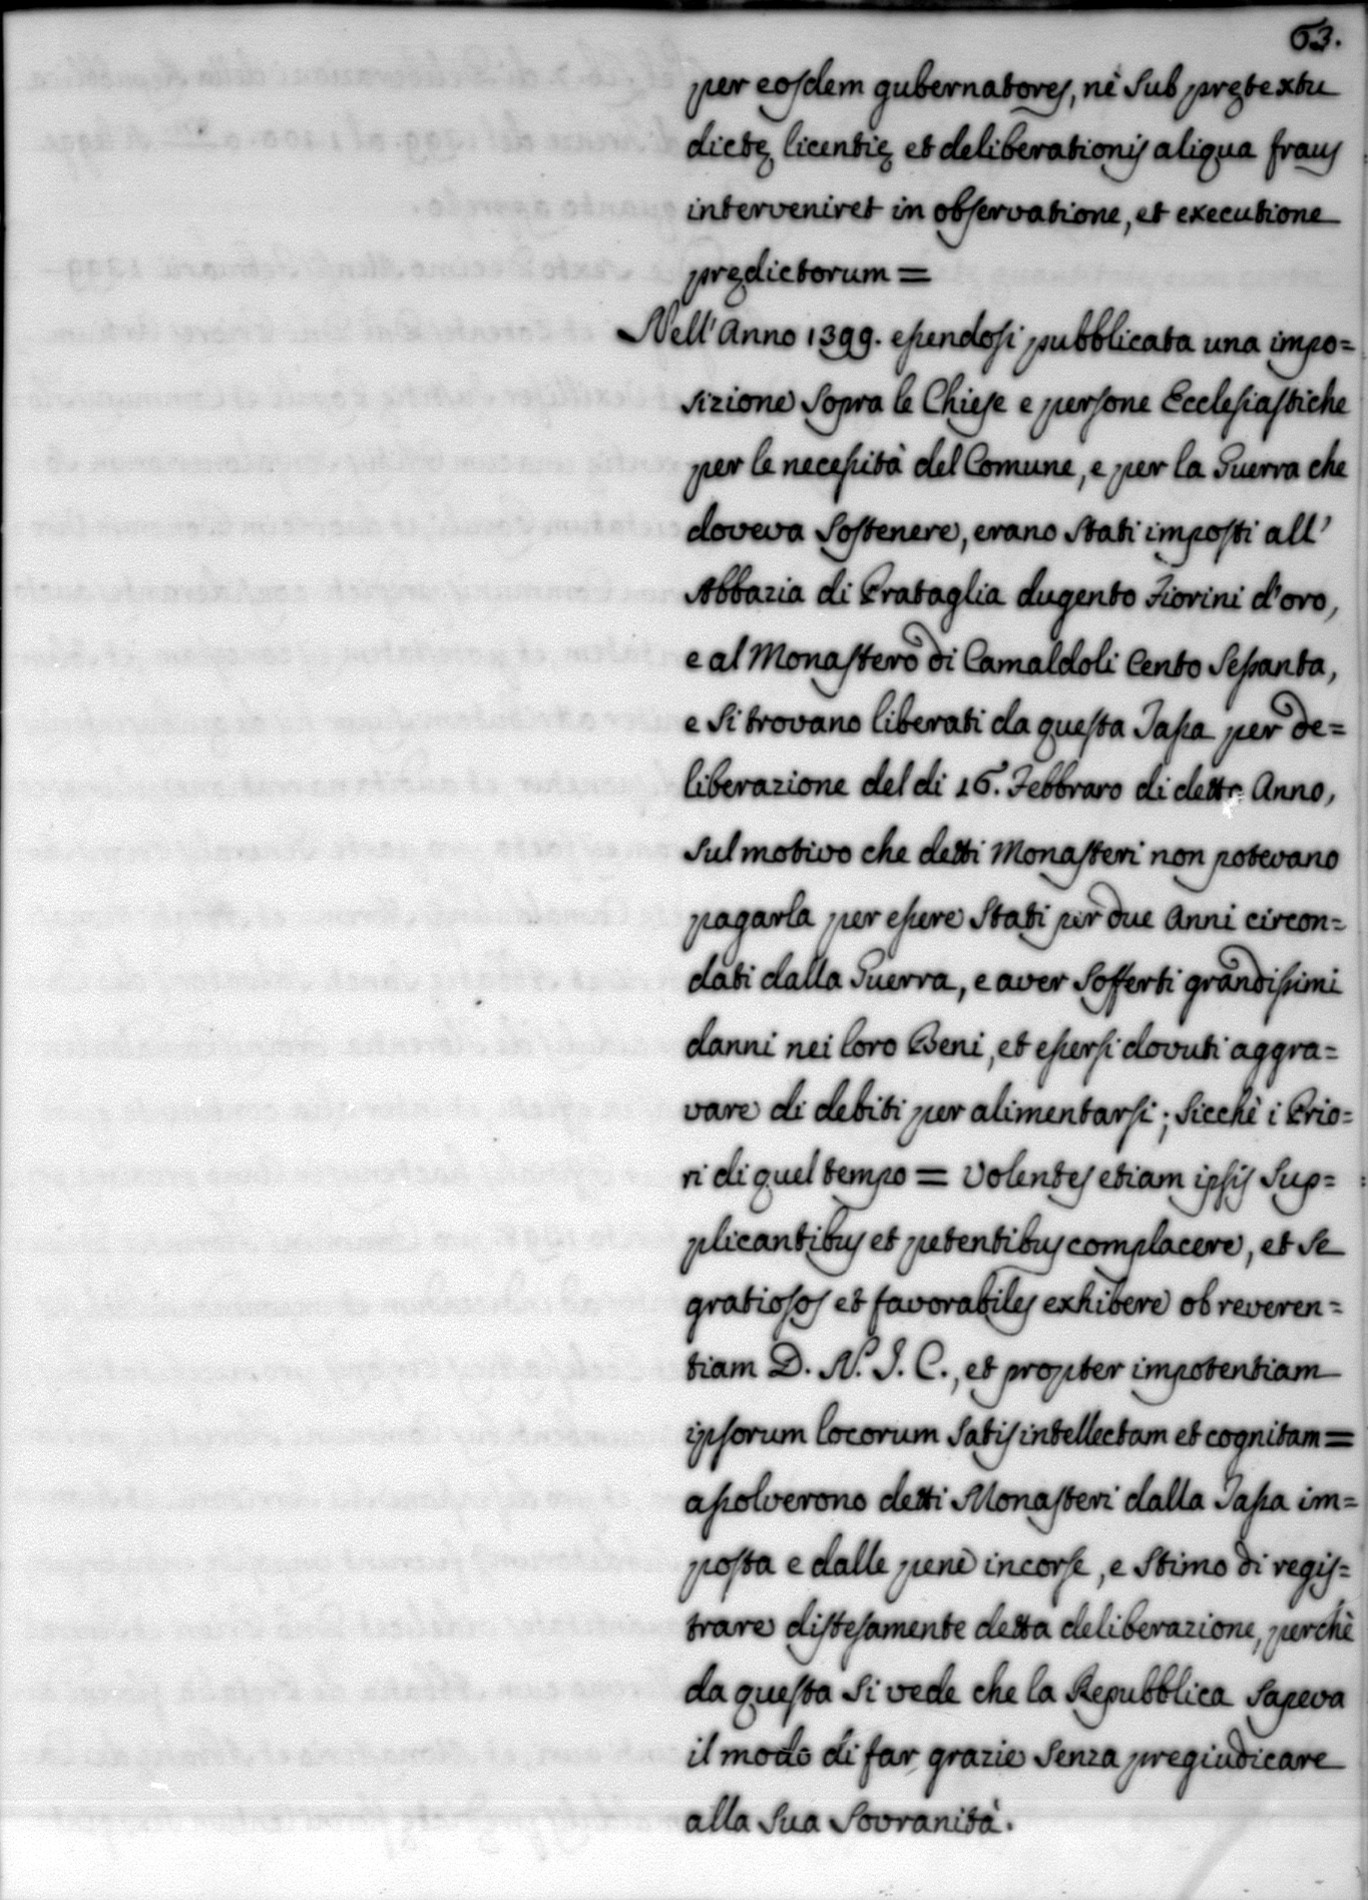 63.
per eosdem gubernatores, nè sub prętextu
dictę licentię et deliberationis aliqua fraus
interveniret in observatione, et executione
prędictorum =
Nell' Anno 1399. essendosi pubblicata una impo=
sizione sopra le Chiese e persone Ecclesiastiche
per le necessità del Comune, e per la Guerra che
doveva sostenere, erano stati imposti all'
Abbazia di Prataglia dugento Fiorini d'oro,
e al Monastero di Camaldoli Cento Sessanta,
e si trovano liberati da questa Tassa per de=
liberazione del di 16. Febbraro di detto Anno,
sul motivo che detti Monasteri non potevano
pagarla per essere stati per due Anni circon=
dati dalla Guerra, e aver sofferti grandissimi
danni nei loro Beni, et essersi dovuti aggra=
vare di debiti per alimentarsi; sicchè i Prio=
ri di quel tempo = Volentes etiam ipsis sup=
plicantibus et petentibus complacere, et se
gratiosos et favorabiles exhibere ob reveren=
tiam D. N. J. C., et propter impotentiam
ipsorum locorum satis intellectam et cognitam =
assolverono detti Monasteri dalla Tassa im=
posta e dalle pene incorse, e stimo di regis=
trare distesamente detta deliberazione, perchè
da questa si vede che la Repubblica sapeva
il modo di far grazie senza pregiudicare
alla sua Sovranità.